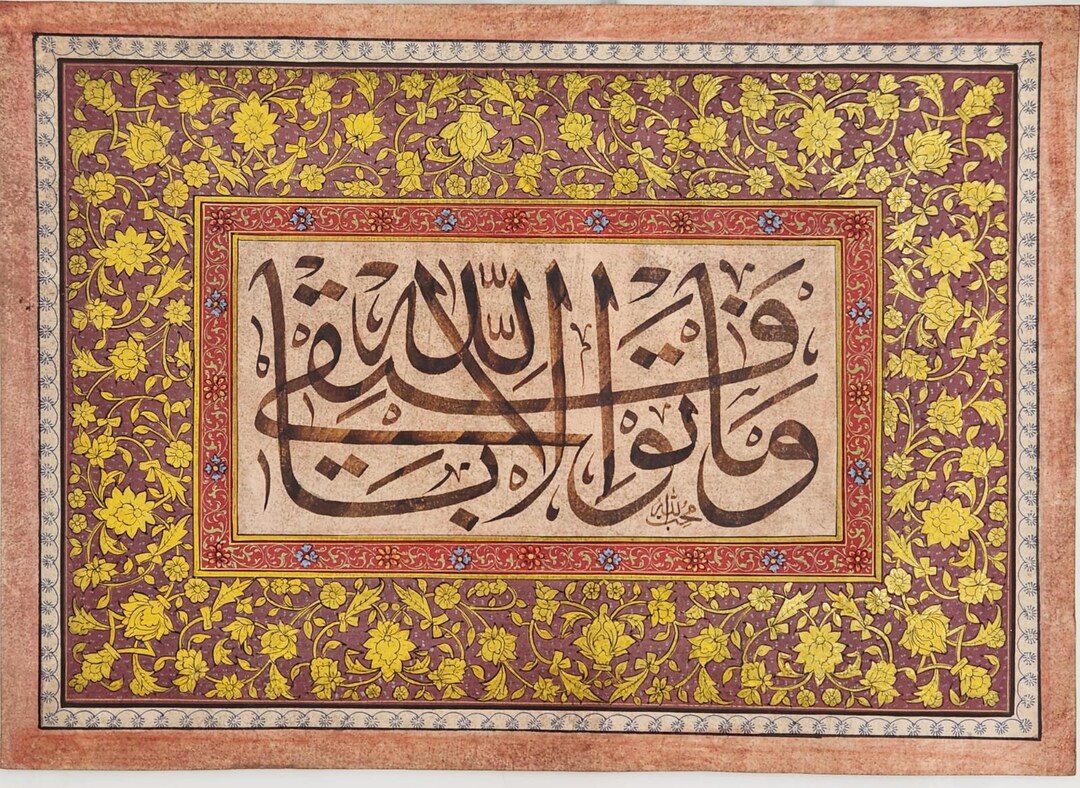 وما توفيقي الا بالله